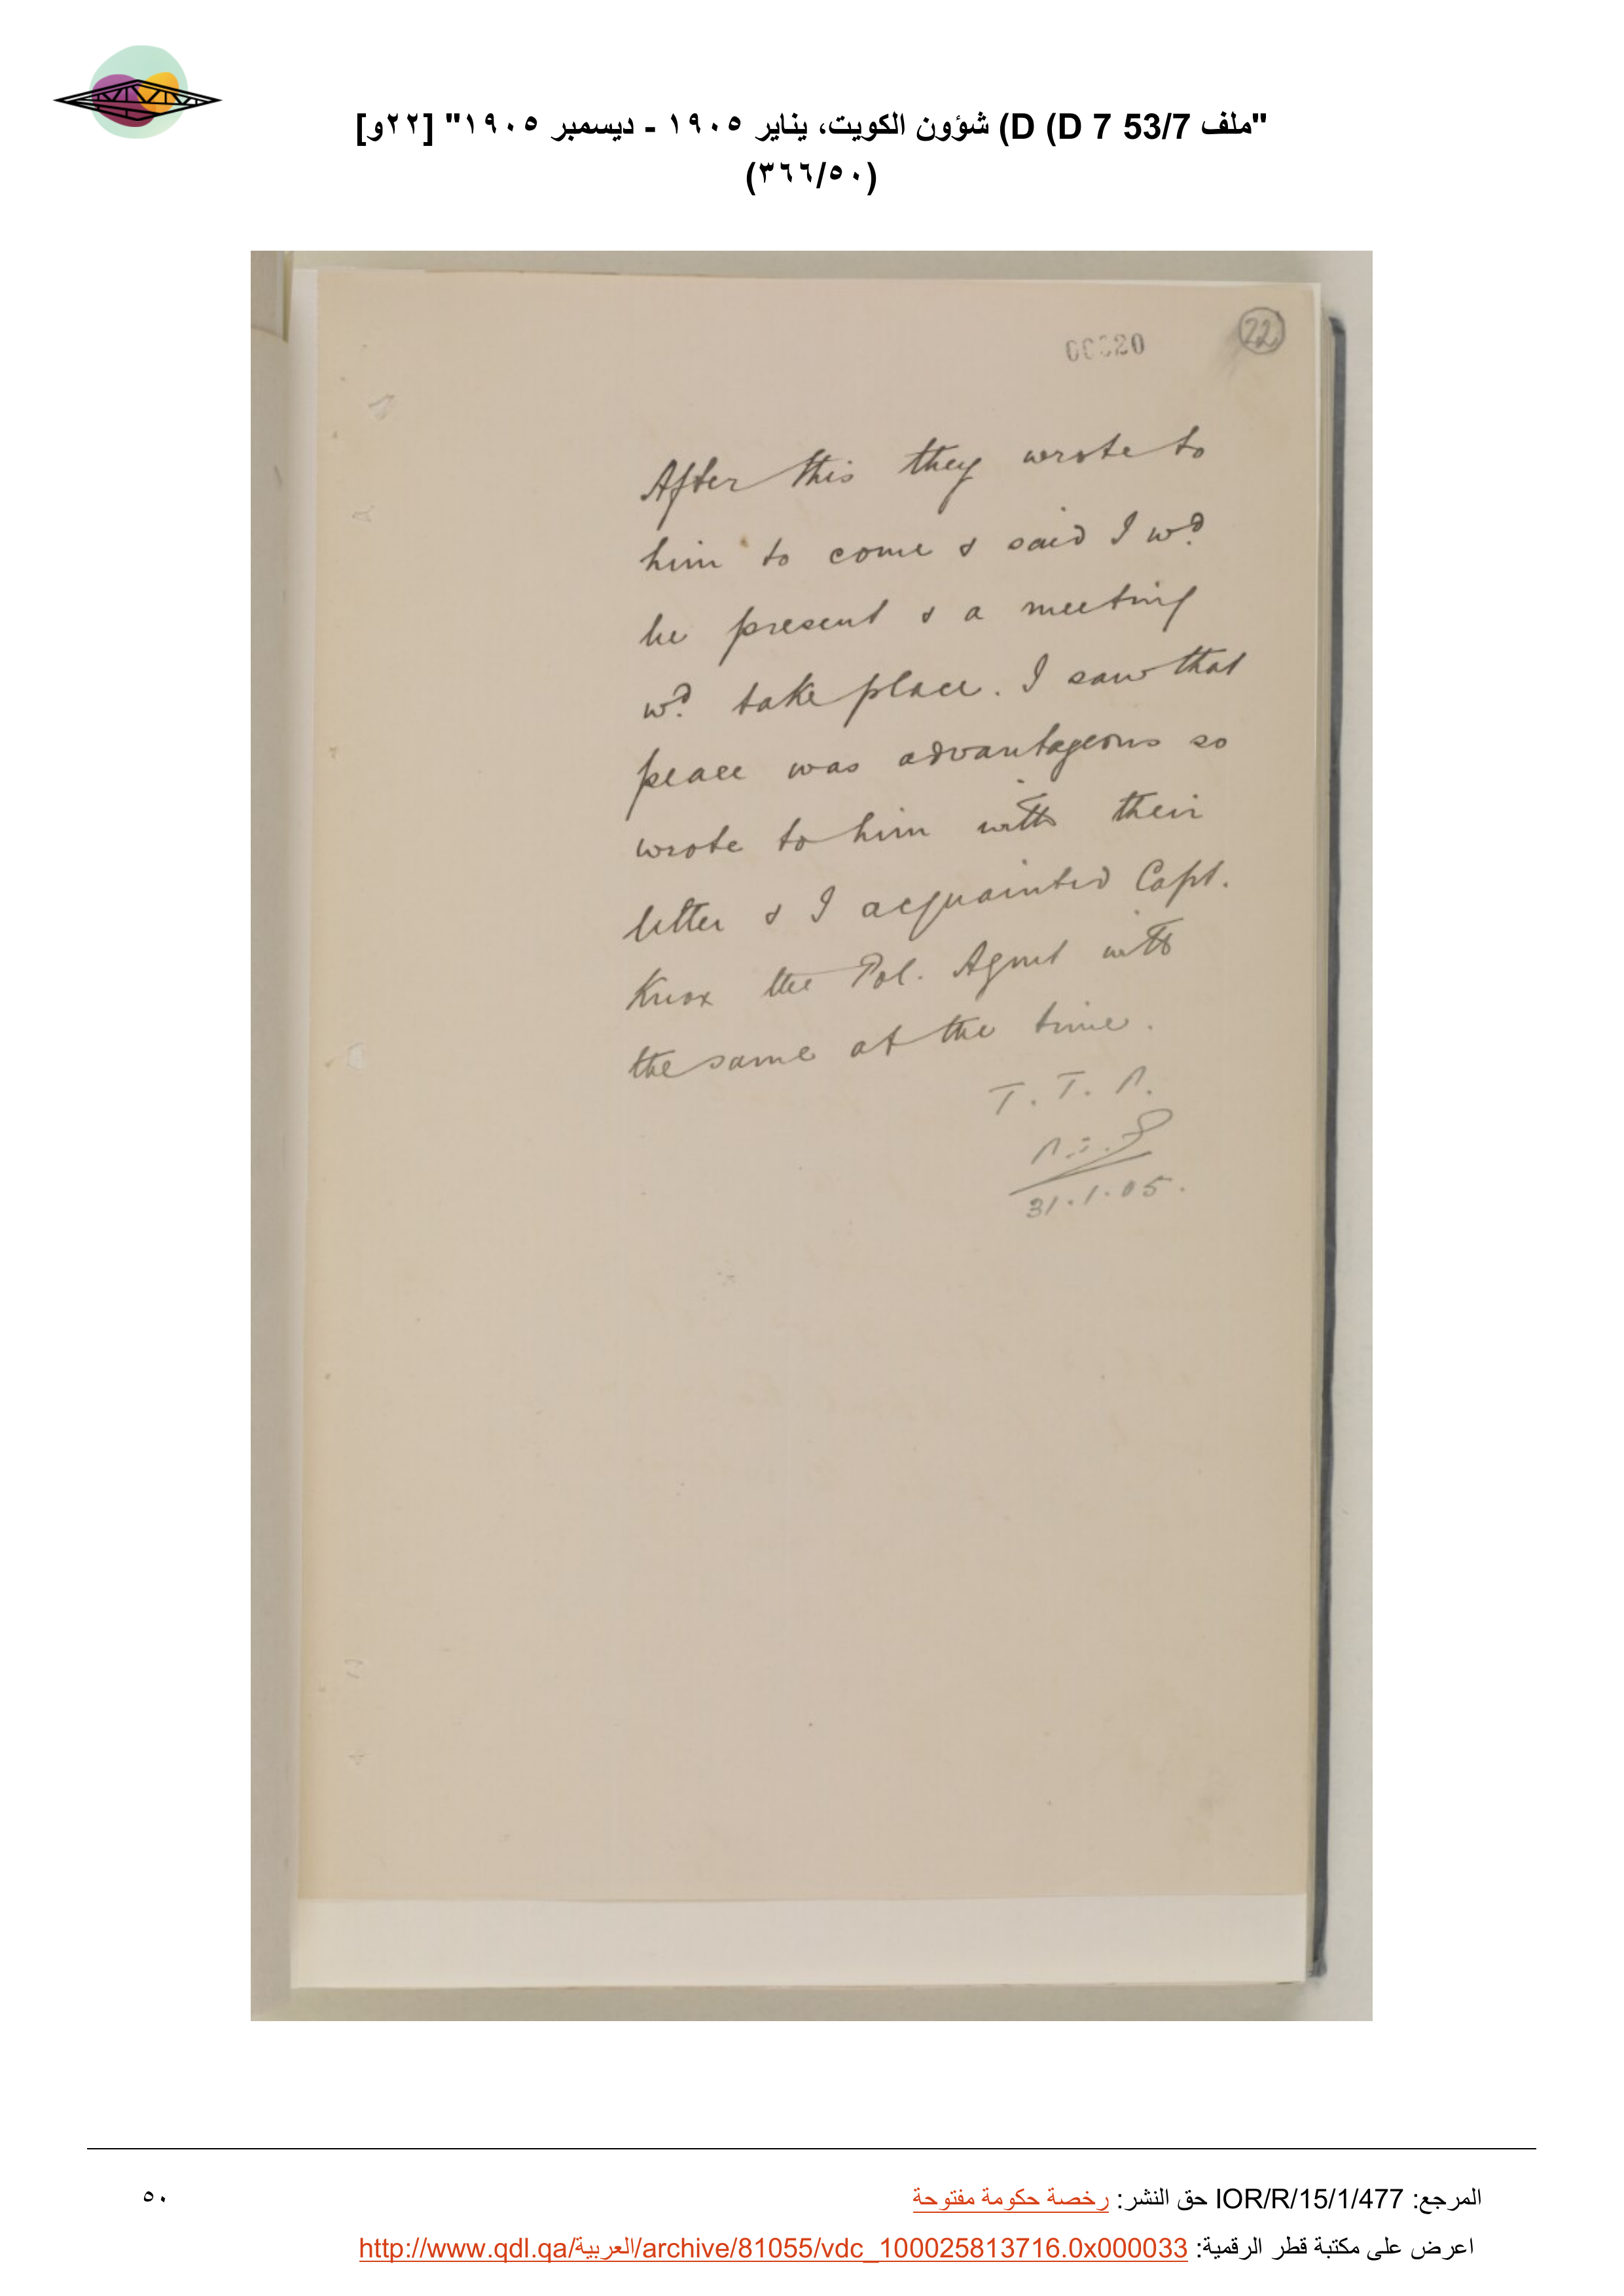 "ملف 53/7 D 7) D) شؤون الكويت، يناير ١٩٠٥ - ديسمبر ١٩٠٥" [٢٢و]
(٣٦٦/٥٠)
22
After this they wrote to
him to come & said I wd.
be present & a meeting
wd. take place. I saw that
peace was advantageous so
wrote to him with their
letter & I acquainted Capt.
Knox the Pol. Agent with
the same at the time.
31.1.05.
المرجع: IOR/R/15/1/477 حق النشر: رخصة حكومة مفتوحة
٥٠
اعرض على مكتبة قطر الرقمية: http://www.qdl.qa/العربية/archive/81055/vdc_100025813716.0x000033